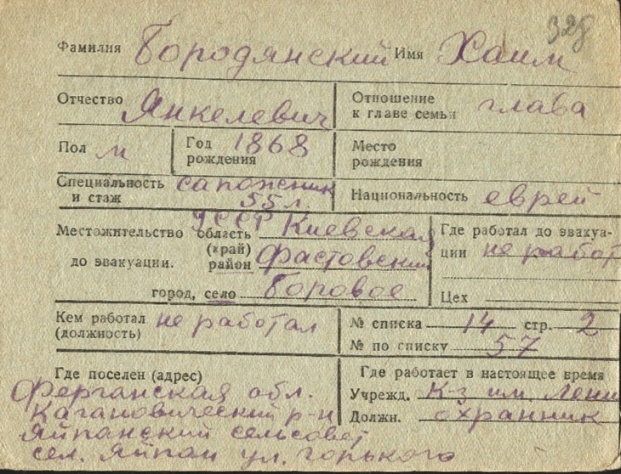 328
Фамилия Бородянский Имя Хаим
Отчество Янкелевич Отношение к главе семьи глава
Пол м Год рождения 1868 Место рождения
Специальность и стаж сапожник 55 л. Национальность еврей
Местожительство до эвакуации. область (край) УССР Киевская
район Фастовский
город, село Боровое
Где работал до эвакуации не работ
Цех
Кем работал (должность) не работал
№ списка 14 стр. 2
№ по списку 57
Где поселен (адрес)
Ферганская обл.
Кагановический р-н
Яйпанский сельсовет
сел. Яйпан ул. Горького
Где работает в настоящее время
Учрежд. К-з им. Лени
Должн. охранник